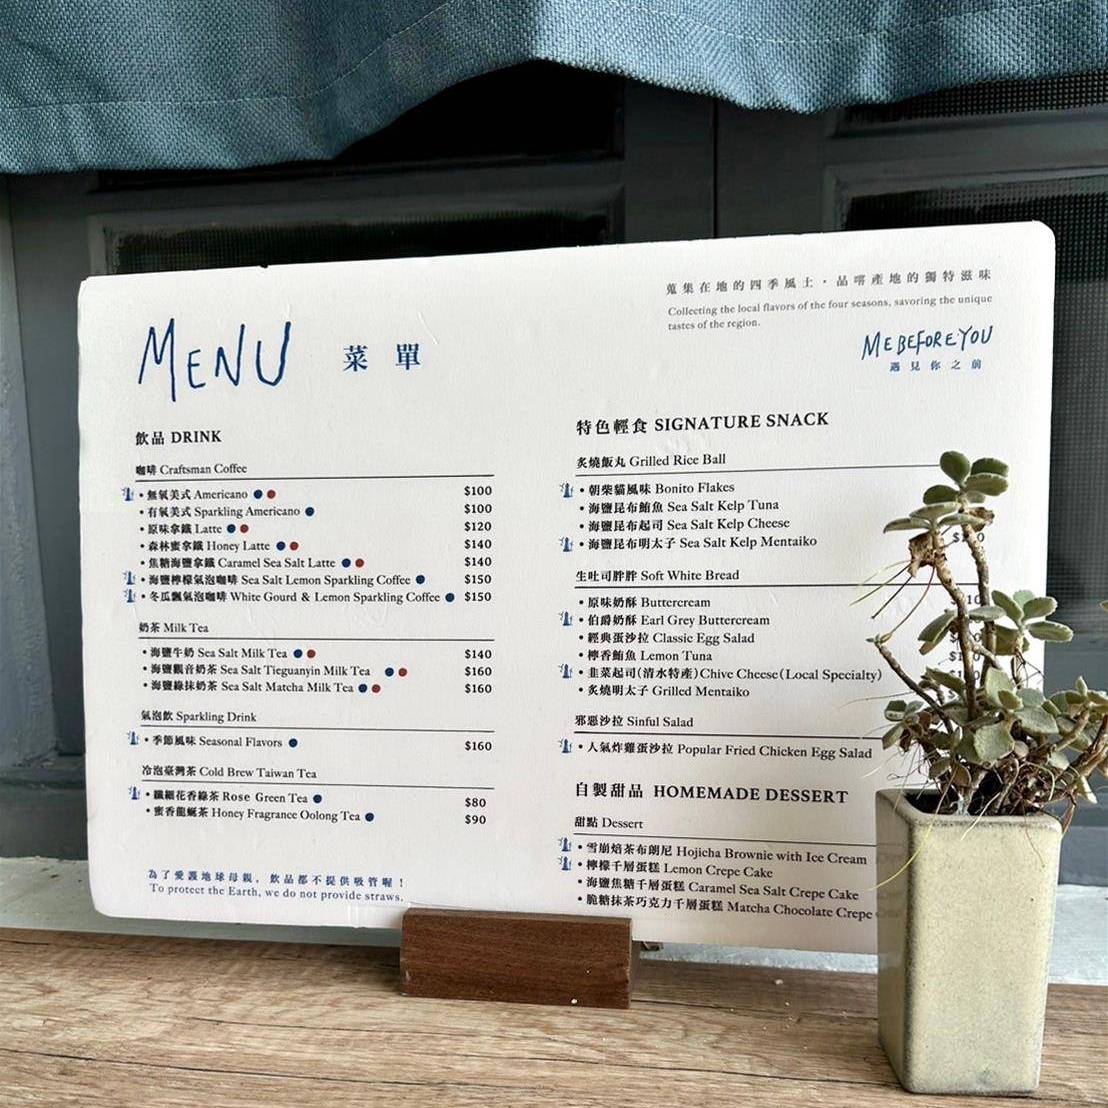 蒐集在地的四季風土・品嚐產地的獨特滋味
Collecting the local flavors of the four seasons, savoring the unique
tastes of the region.
MENU 菜單
ME BEFORE YOU
遇見你之前
飲品 DRINK
咖啡 Craftsman Coffee
• 無氧美式 Americano $100
• 有氧美式 Sparkling Americano $100
• 原味拿鐵 Latte $120
• 森林蜜拿鐵 Honey Latte $140
• 焦糖海鹽拿鐵 Caramel Sea Salt Latte $140
• 海鹽檸檬氣泡咖啡 Sea Salt Lemon Sparkling Coffee $150
• 冬瓜飄氣泡咖啡 White Gourd & Lemon Sparkling Coffee $150
奶茶 Milk Tea
• 海鹽牛奶 Sea Salt Milk Tea $140
• 海鹽觀音奶茶 Sea Salt Tieguanyin Milk Tea $160
• 海鹽綠抹奶茶 Sea Salt Matcha Milk Tea $160
氣泡飲 Sparkling Drink
• 季節風味 Seasonal Flavors $160
冷泡臺灣茶 Cold Brew Taiwan Tea
• 纖細花香綠茶 Rose Green Tea $80
• 蜜香龍蜒茶 Honey Fragrance Oolong Tea $90
為了愛護地球母親，飲品都不提供吸管喔！
To protect the Earth, we do not provide straws.
特色輕食 SIGNATURE SNACK
炙燒飯丸 Grilled Rice Ball
• 朝柴貓風味 Bonito Flakes
• 海鹽昆布鮪魚 Sea Salt Kelp Tuna
• 海鹽昆布起司 Sea Salt Kelp Cheese
• 海鹽昆布明太子 Sea Salt Kelp Mentaiko
生吐司胖胖 Soft White Bread
• 原味奶酥 Buttercream
• 伯爵奶酥 Earl Grey Buttercream
• 經典蛋沙拉 Classic Egg Salad
• 檸香鮪魚 Lemon Tuna
• 韭菜起司(清水特產) Chive Cheese (Local Specialty)
• 炙燒明太子 Grilled Mentaiko
邪惡沙拉 Sinful Salad
• 人氣炸雞蛋沙拉 Popular Fried Chicken Egg Salad
自製甜品 HOMEMADE DESSERT
甜點 Dessert
• 雪崩焙茶布朗尼 Hojicha Brownie with Ice Cream
• 檸檬千層蛋糕 Lemon Crepe Cake
• 海鹽焦糖千層蛋糕 Caramel Sea Salt Crepe Cake
• 脆糖抹茶巧克力千層蛋糕 Matcha Chocolate Crepe